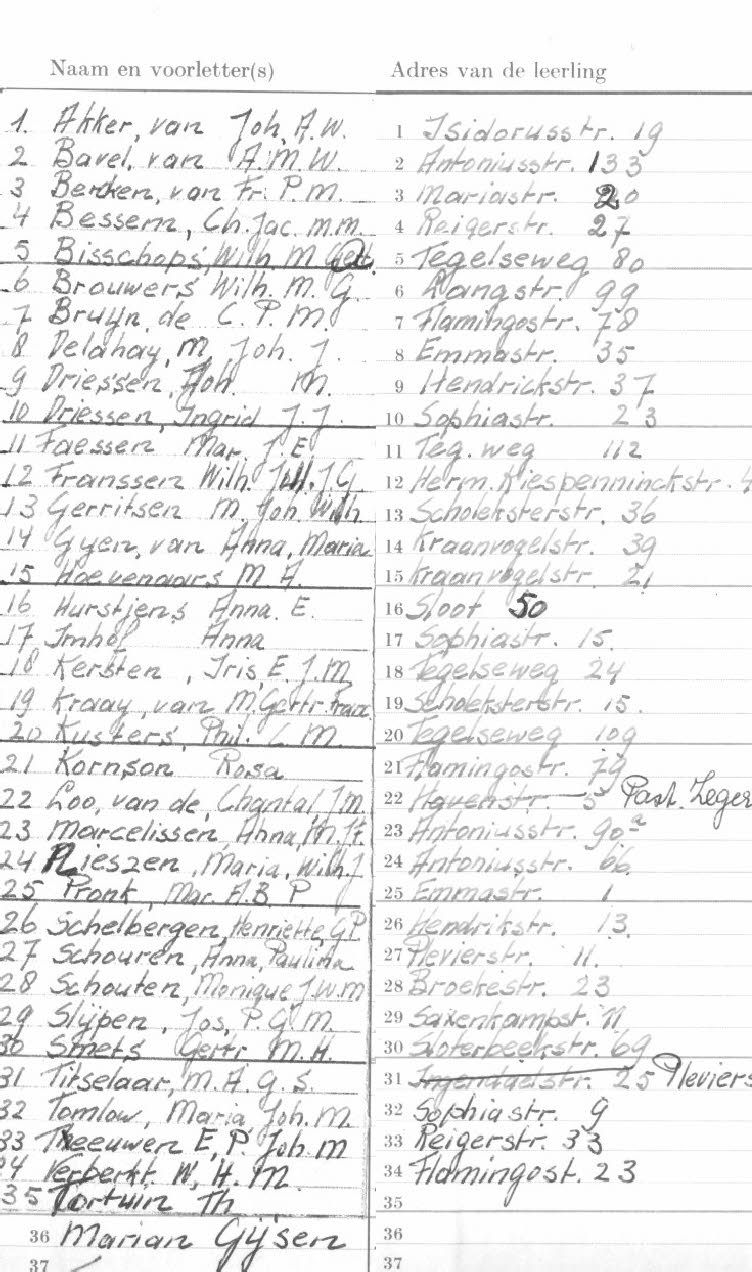 Naam en voorletter(s) Adres van de leerling
1. Akker, van Joh. A.W. 1 Isidorusstr. 19
2 Bavel, van A.M.W. 2 Antoniusstr. 133
3 Bercken, van Fr. P.M. 3 Mariastr. 20
4 Bessem, Ch. Jac. M.M. 4 Reigerstr. 27
5 Bisschops, Wilh. M. 5 Tegelseweg 80
6 Brouwers Wilh. M. G. 6 Langstr 99
7 Bruyn, de C. P. M. 7 Flamingostr. 78
8 Delahay, M, Joh. J. 8 Emmastr. 35
9 Driessen, Joh. M. 9 Hendrickstr. 37
10 Driessen, Ingrid J.J. 10 Sophiastr. 23
11 Faessen Mar. J. E. 11 Teg. weg 112
12 Franssen Wilh. Joh. J G 12 Herm. Kiespenninckstr.
13 Gerritsen M. Joh. Wilh 13 Scholeksterstr. 36
14 Gyen, van Anna, Maria 14 Kraanvogelstr. 39
15 Hoevenaars M. A. 15 Kraanvogelstr. 21
16 Hurstjens Anna. E. 16 Sloot 50
17 Imhof Anna 17 Sophiastr. 15.
18 Kersten, Iris, E. J.M. 18 Tegelseweg 24
19 Kraay, van M. Gertr. Franc. 19 Scholeksterstr. 15.
20 Kusters, Phil. C M. 20 Tegelseweg 109
21 Kornson Rosa 21 Flamingostr. 79
22 Loo, van de, Chantal J.M. 22 Havenstr. 5 Past. Zeger
23 Marcelissen, Anna, M. 23 Antoniusstr. 90a
24 Rieszen, Maria, Wilh. J 24 Antoniusstr. 66.
25 Pronk, Mar. A.B. P 25 Emmastr. 1
26 Schelbergen, Henriette, G.P. 26 Hendrikstr. 13.
27 Schouren, Anna, Paulina 27 Plevierstr. 11.
28 Schouten, Monique J.W.M 28 Broekestr. 23
29 Slijpen, Jos, P. G. M. 29 Saxenkampst. 11
30 Smets Gertr. M. H. 30 Sloterbeekstr. 69
31 Titselaar, M. A. G. S. 31 25 Pleviers
32 Tomlow, Maria Joh. M. 32 Sophiastr. 9
33 Theeuwen E, P. Joh. M 33 Reigerstr. 33
34 Verberkt W, H. M. 34 Flamingost. 23
35 Fortuin Th 35
36 Marian Gijsen 36
37 37